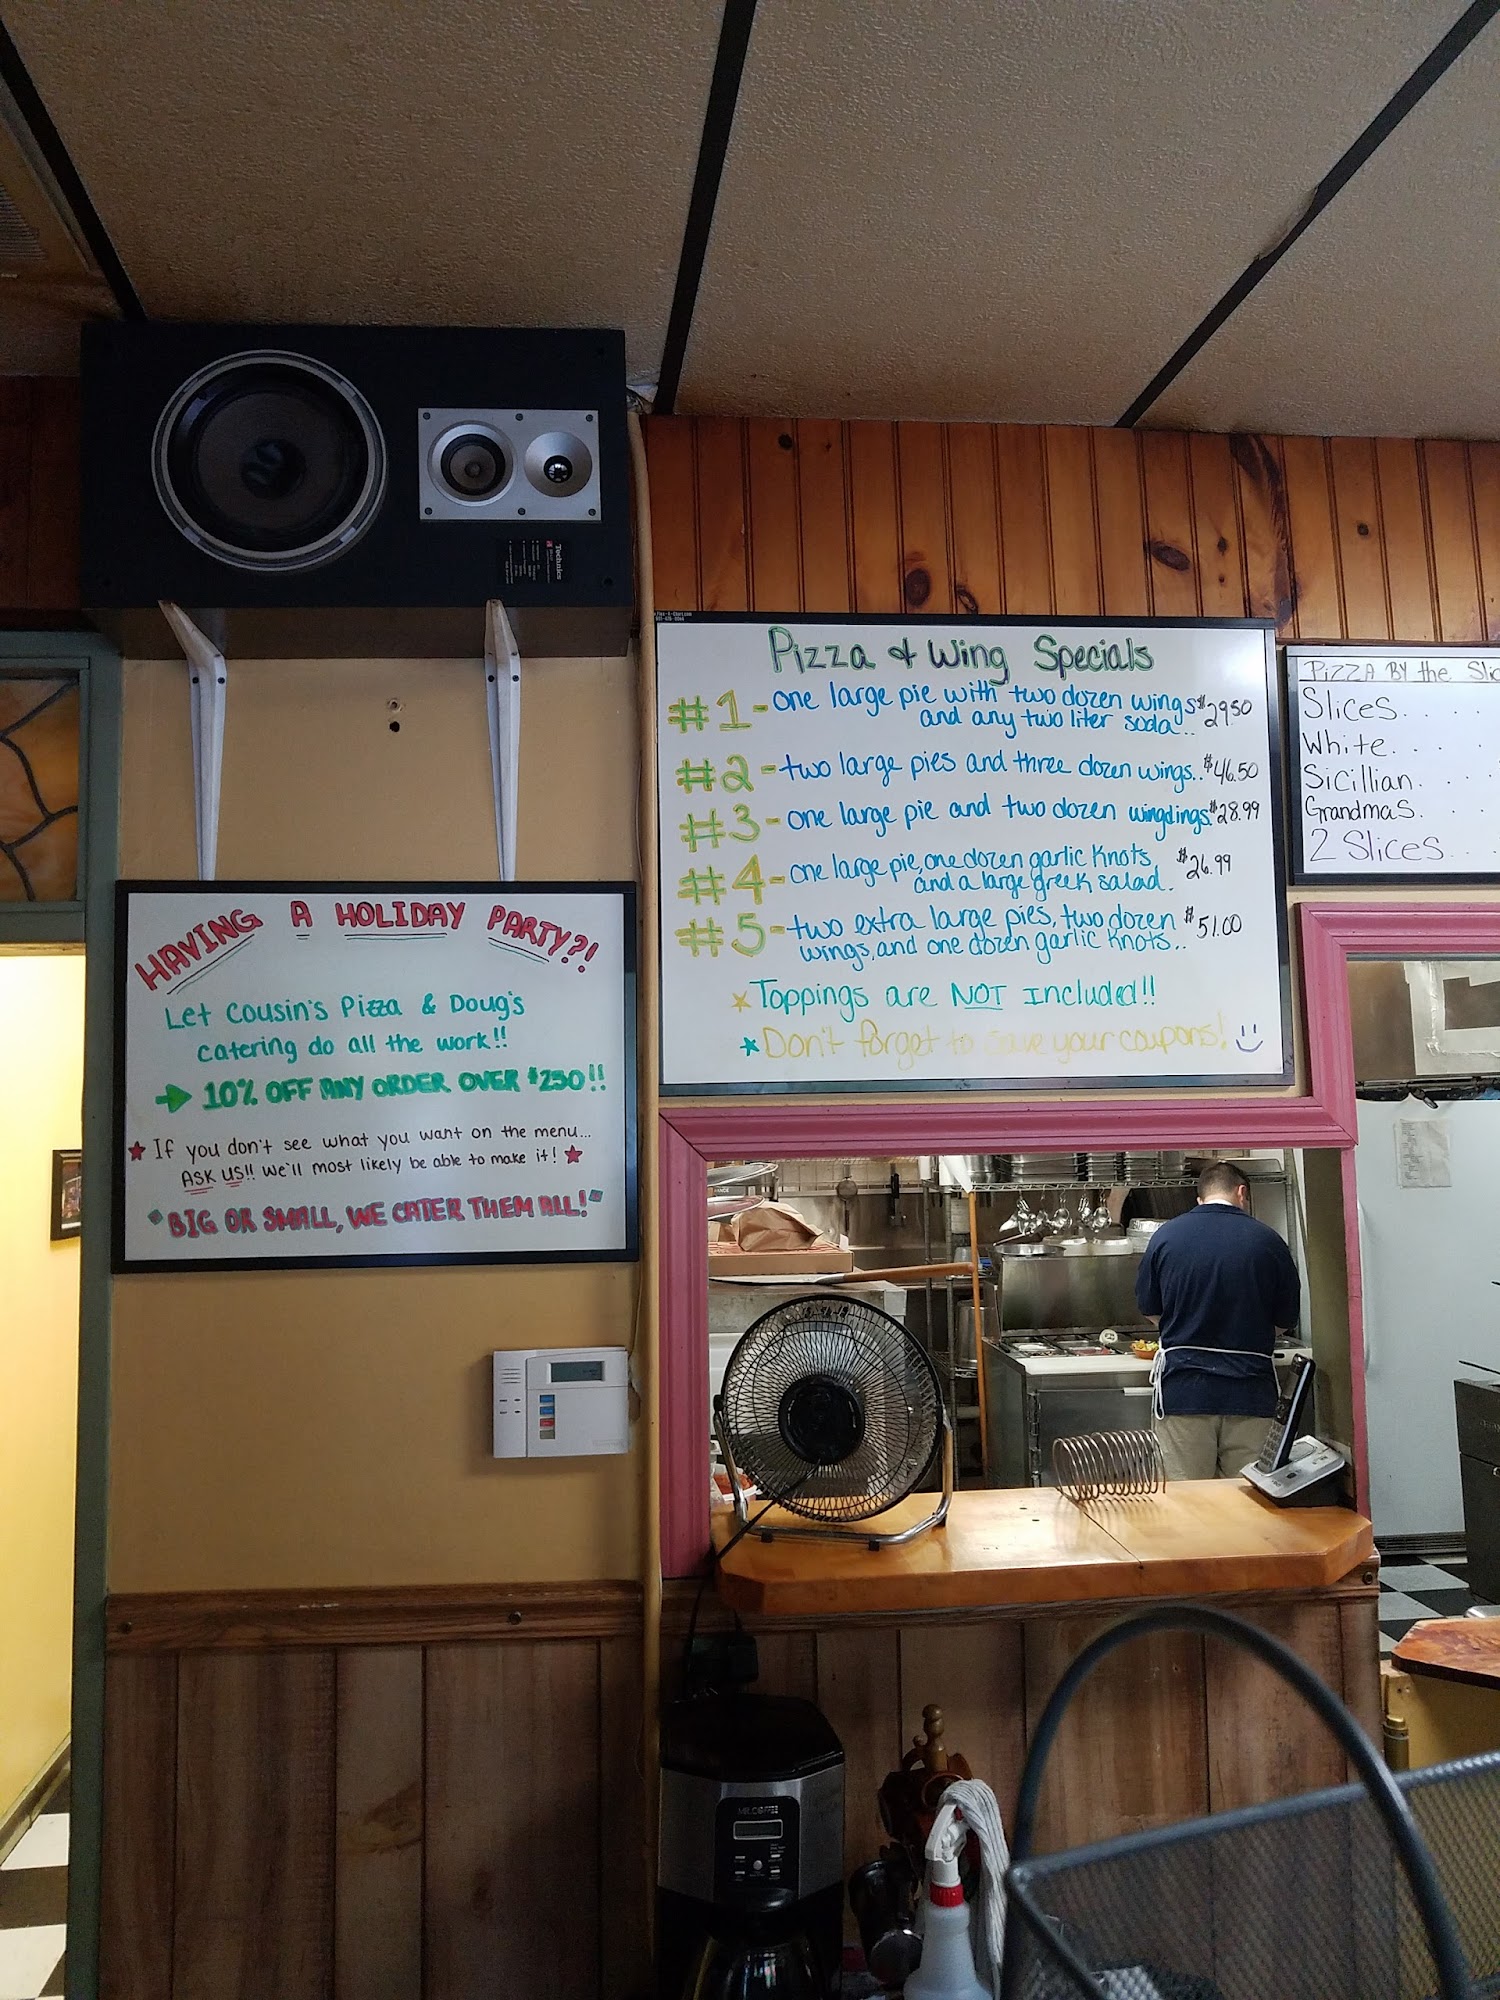 Technics
Pizza & Wing Specials
#1 - one large pie with two dozen wings
and any two liter soda.. $29.50
#2 - two large pies and three dozen wings.. $46.50
#3 - one large pie and two dozen wingdings. $28.99
#4 - one large pie, one dozen garlic knots,
and a large greek salad. $26.99
#5 - two extra large pies, two dozen
wings, and one dozen garlic knots.. $51.00
Toppings are NOT included!!
Don't forget to save your coupons!
Pizza By the Slic
Slices. . . .
White. . . .
Sicillian. . .
Grandmas. . .
2 Slices. . .
HAVING A HOLIDAY PARTY?!
Let Cousin's Pizza & Doug's
catering do all the work!!
10% OFF ANY ORDER OVER $250!!
If you don't see what you want on the menu...
ASK US!! We'll most likely be able to make it!
BIG OR SMALL, WE CATER THEM ALL!
MR. COFFEE